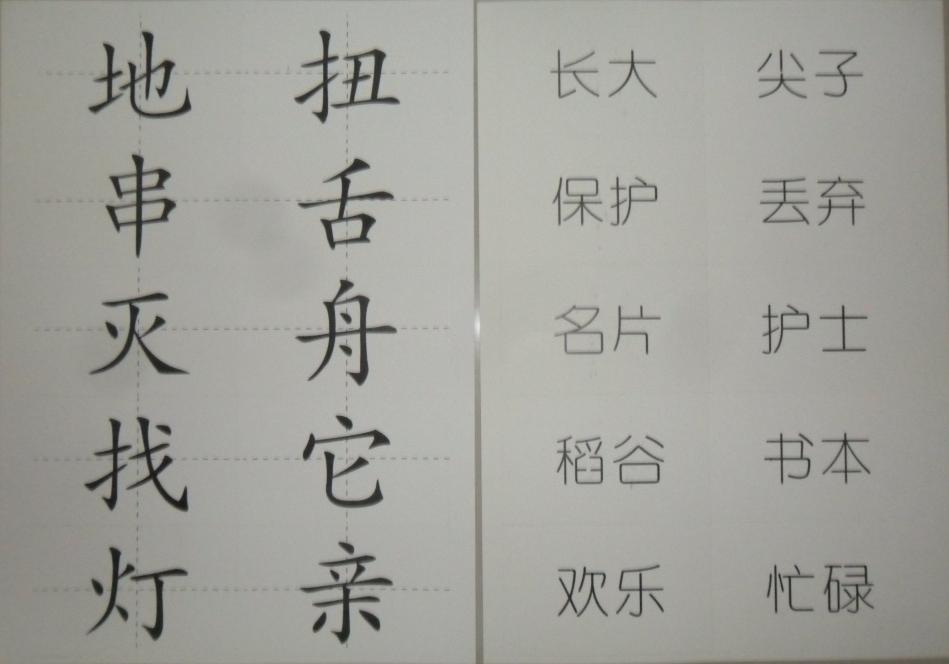 地 扭
串 舌
灭 舟
找 它
灯 亲
长大 尖子
保护 丢弃
名片 护士
稻谷 书本
欢乐 忙碌